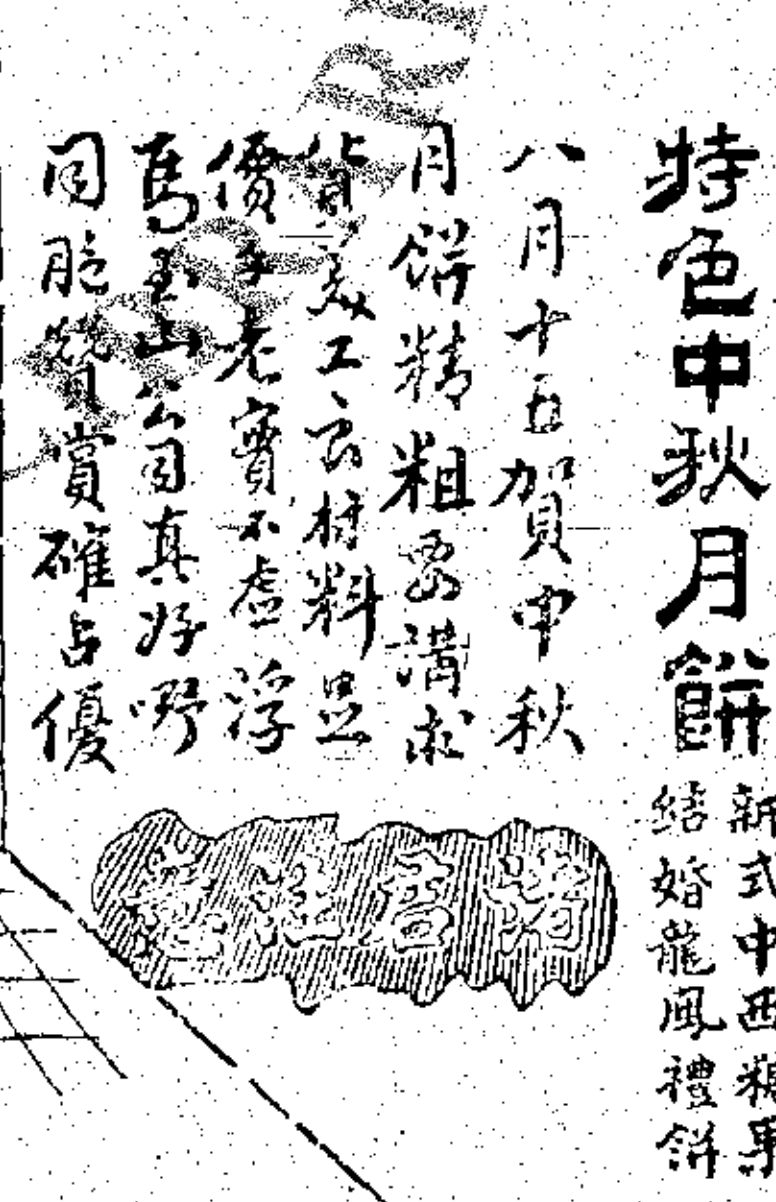 特色中秋月餅
新式中西糖果
結婚龍鳳禮餅
八月十五賀中秋
月餅精粗要講求
貨美工良材料
價老實不虛浮
馬玉山公司真好嘢
同胞贊賞確占優
請君注意